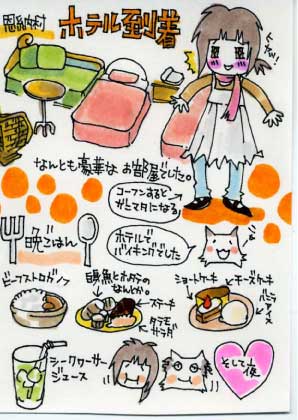 恩納村
ホテル到着
なんとも豪華なお部屋でした。
コーフンすると
ガニマタになる
晩ごはん
ホテルで
バイキングでした
ビーフストロガノフ
白身魚とホタテの
なんとか。
ステーキ
タラモ
サラダ
ショートケーキ
チーズケーキ
バニラ
アイス
シークヮーサー
ジュース
そして夜